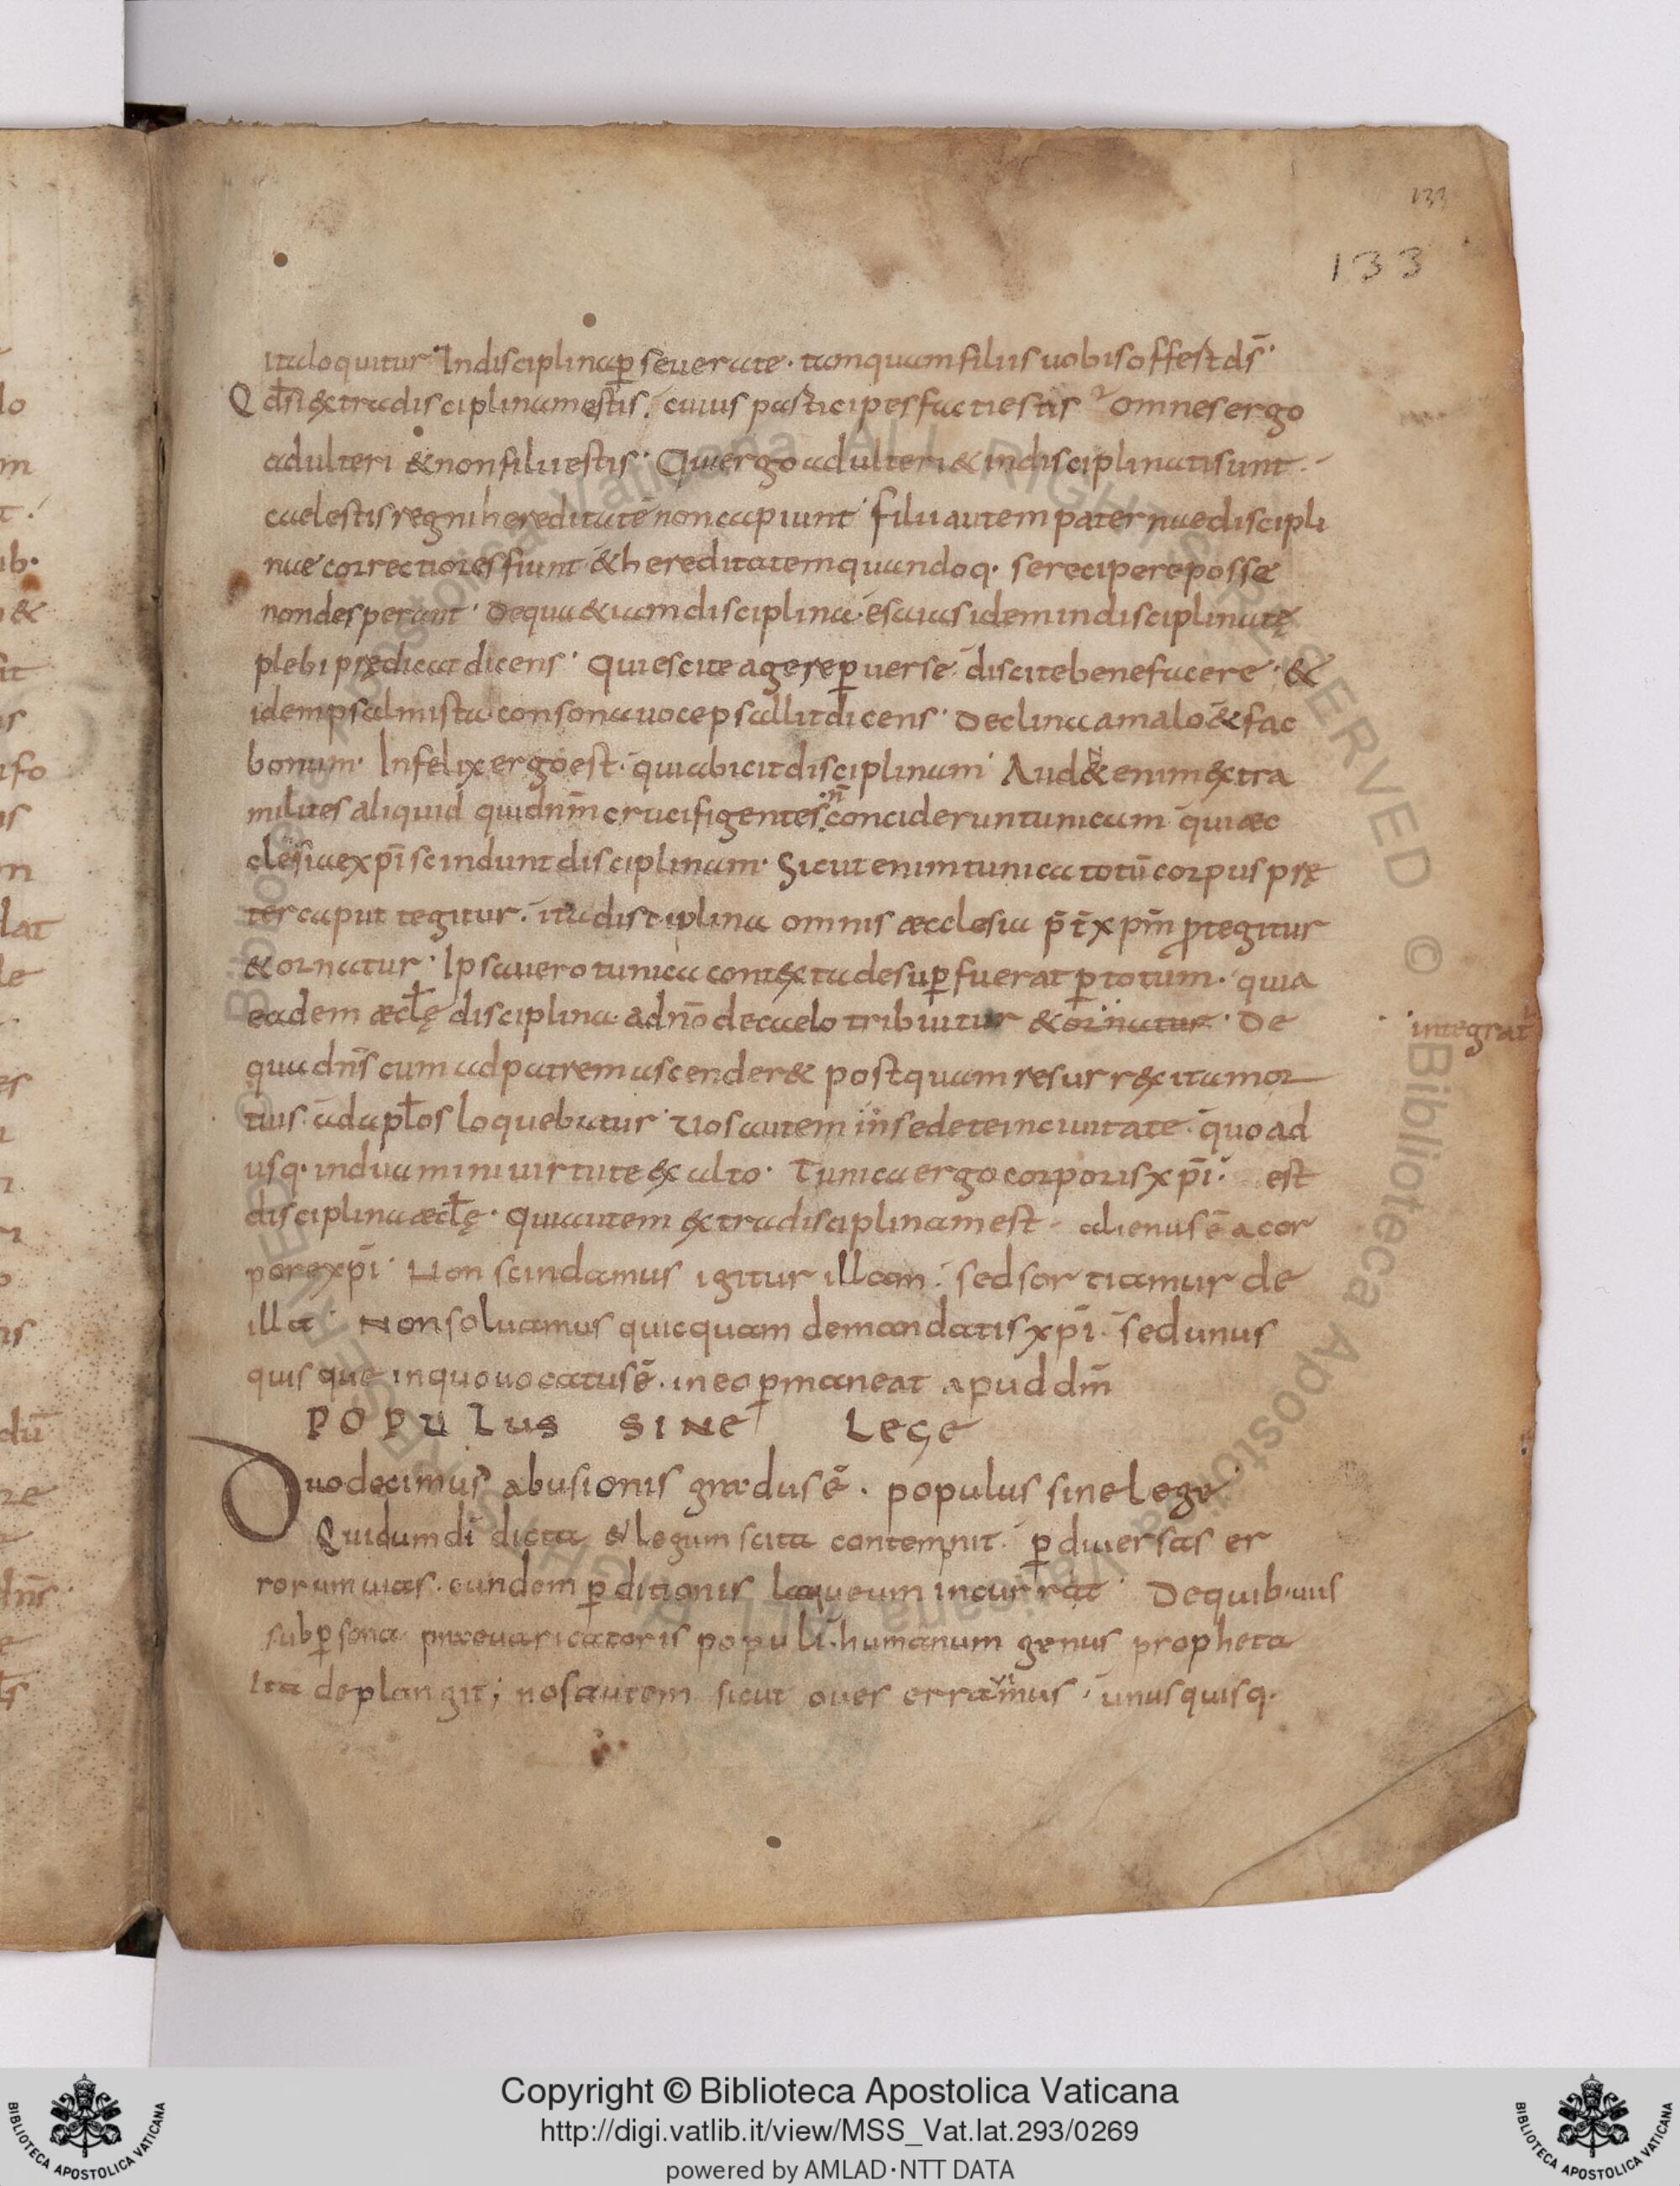 133
133
ita loquitur · In disciplina ꝑseuerate · tamquam filiis uobis offest d̄s ·
Qd̄ si extra disciplinam estis · cuius participes facti estis omnes ergo
adulteri & non filii estis · Qui ergo adulteri & indisciplinati sunt ·
caelestis regni hereditatē non capiunt · filii autem paternae discipli
nae correctiores fiunt · & hereditatem quandoq· se recipere posse
non desperant · De qua & iam disciplina · esaias idem indisciplinatę
plebi prędicat dicens · Quiescite agere ꝑuerse · discite benefacere · &
idem psalmista consona uoce psallit dicens · Declina a malo & fac
bonum · Infelix ergo est · qui abicit disciplinam · Aud& enim extra
milites aliquid qui dn̄m crucifigentes · n̄ conciderunt tunicam · qui aec
clesiae xp̄i scindunt disciplinam · Sicut enim tunica totū corpus prę
ter caput tegitur · ita disciplina omnis aecclesia p̄t xp̄m ꝓtegitur
& ornatur · Ipsa uero tunica contexta desuꝑ fuerat ꝑ totum · quia
eadem aecl̄ę disciplina · a dn̄o de caelo tribuitur & ornatur · De
integrat̄
qua dn̄s cum ad patrem ascender& postquam resurrexit a mor
tuis · ad apl̄os loquebatur · Uos autem in sedete in ciuitate · quo ad
usq· induamini uirtute ex alto · Tunica ergo corporis xp̄i · est
disciplina aecl̄ę · qui autem extra disciplinam est · alienus ē a cor
pore xp̄i · Non scindamus igitur illam · sed sortiamur de
illa · Non soluamus quicquam de mandatis xp̄i · sed unus
quisque in quo uocatus ē · in eo ꝑmaneat apud dm̄
POPULUS SINE LEGE
Duodecimus abusionis gradus ē · populus sine lege ·
Qui dum dī dicta & legum scita contempnit · ꝑ diuersas er
rorum uias · eundem ꝑditionis laqueum incurrat · De quib· uiis
sub ꝑsona praeuaricatoris populi · humanum genus propheta
Ita deplangit ; nos autem sicut oues erraui᷑mus · unusquisq·
Copyright © Biblioteca Apostolica Vaticana
http://digi.vatlib.it/view/MSS_Vat.lat.293/0269
powered by AMLAD·NTT DATA
BIBLIOTECA APOSTOLICA VATICANA
BIBLIOTECA APOSTOLICA VATICANA